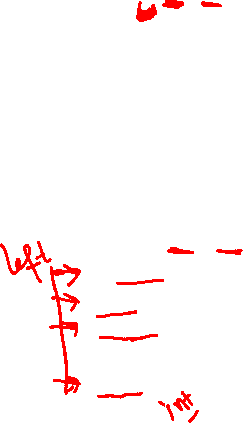 left
int